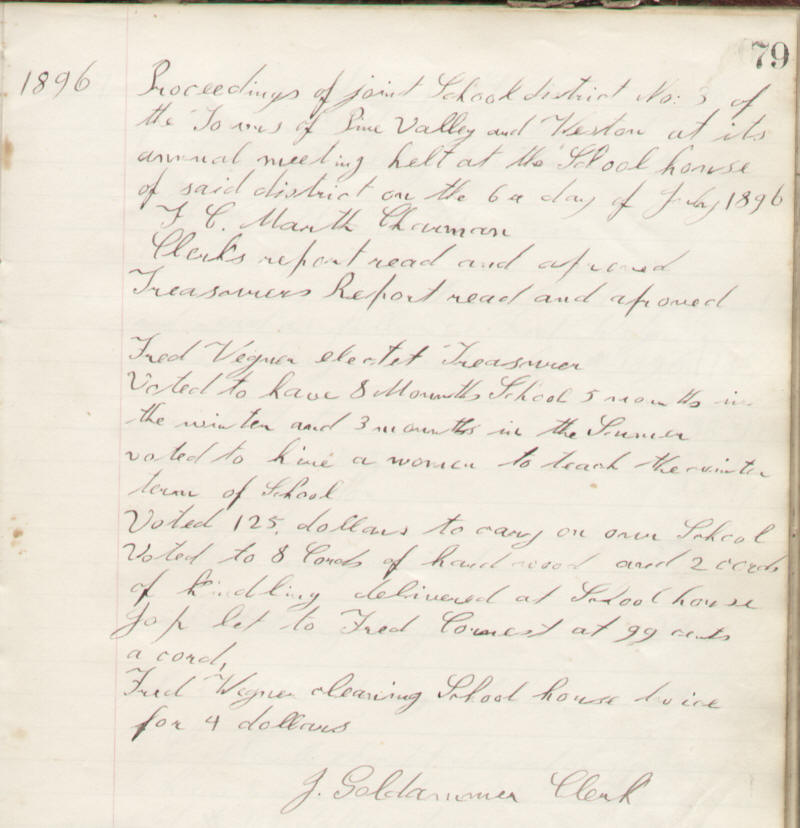 79
1896 Proceedings of joint School district No: 3 of
the Towns of Pine Valley and Weston at its
annual meeting helt at the School house
of said district on the 6 a day of July 1896
F C. Marth Chairman
Clerks report read and aproved
Treasourers Report read and aproved
Fred Vegner electet Treasourer
Voted to have 8 Mounths School 5 mounths in
the winter and 3 mounths in the Sumer
voted to hire a women to teach the winter
term of School
Voted 125. dollars to cary on our School
Voted to 8 Cords of hard wood and 2 cords
of kindling delivered at School house
Jop let to Fred Cornest at 99 cents
a cord,
Fred Wegner cleaning School house twice
for 4 dollars
J. Goldammer Clerk